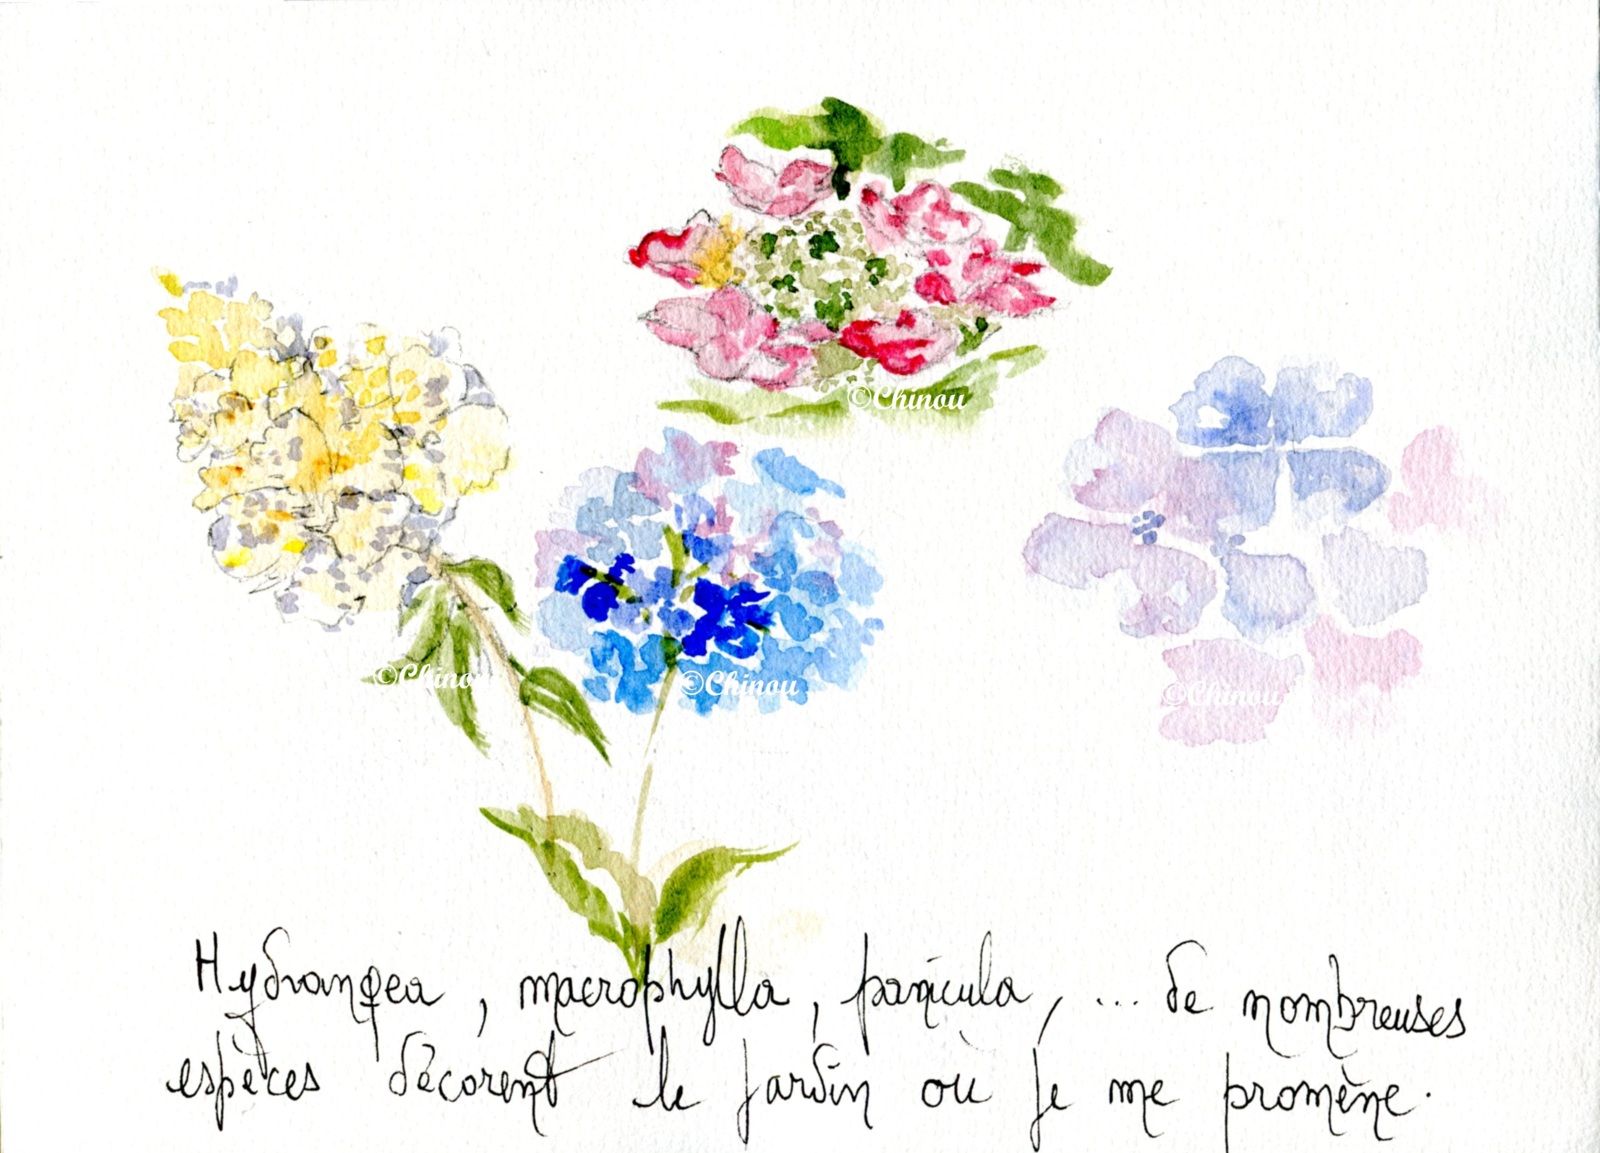 ©Chinou
©Chinou
©Chinou
©Chinou
Hydrangea, macrophylla, panicula, ... de nombreuses
espèces décorent le jardin où je me promène.